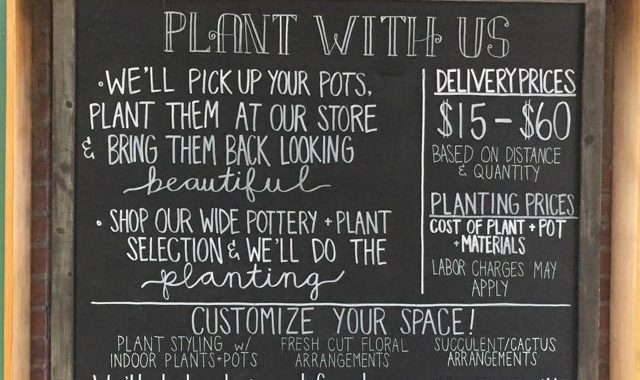 PLANT WITH US
• WE'LL PICK UP YOUR POTS,
PLANT THEM AT OUR STORE
& BRING THEM BACK LOOKING
beautiful
• SHOP OUR WIDE POTTERY + PLANT
SELECTION & WE'LL DO THE
planting
DELIVERY PRICES
$15 - $60
BASED ON DISTANCE
& QUANTITY
PLANTING PRICES
COST OF PLANT + POT
+ MATERIALS
LABOR CHARGES MAY
APPLY
CUSTOMIZE YOUR SPACE!
PLANT STYLING W/
INDOOR PLANTS + POTS
FRESH CUT FLORAL
ARRANGEMENTS
SUCCULENT/CACTUS
ARRANGEMENTS